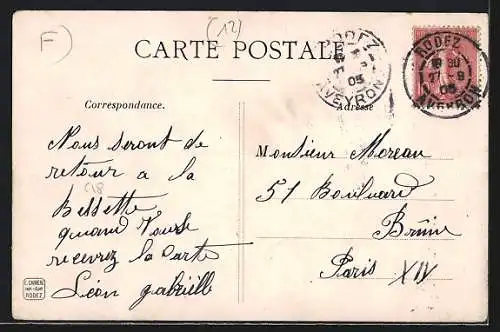 F)
(12)
CARTE POSTALE
RODEZ
05
AVEYRON
RODEZ
18 30
27 - 9
05
AVEYRON
Correspondance.
Adresse
Nous seront de
retour a la
(18
Bessette
quand Vous
recevrez la Carte
Léon gabrielle
Monsieur Moreau
51 Boulevard
Brune
Paris XIV
RODEZ